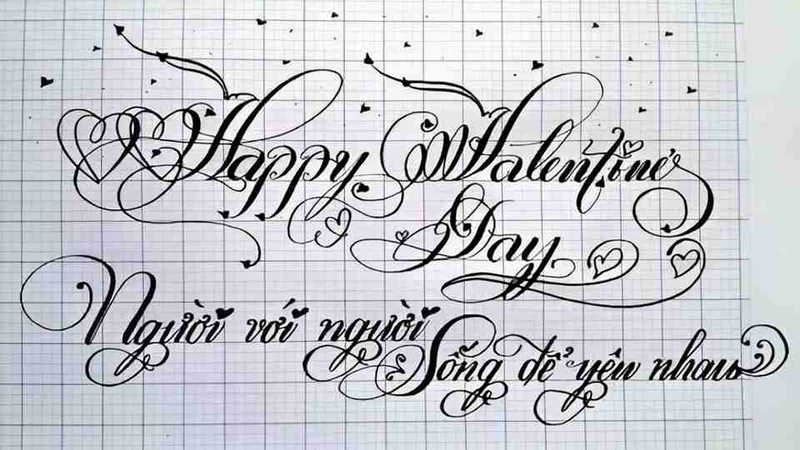 Happy Valentine
Day
Người với người
Sống để yêu nhau